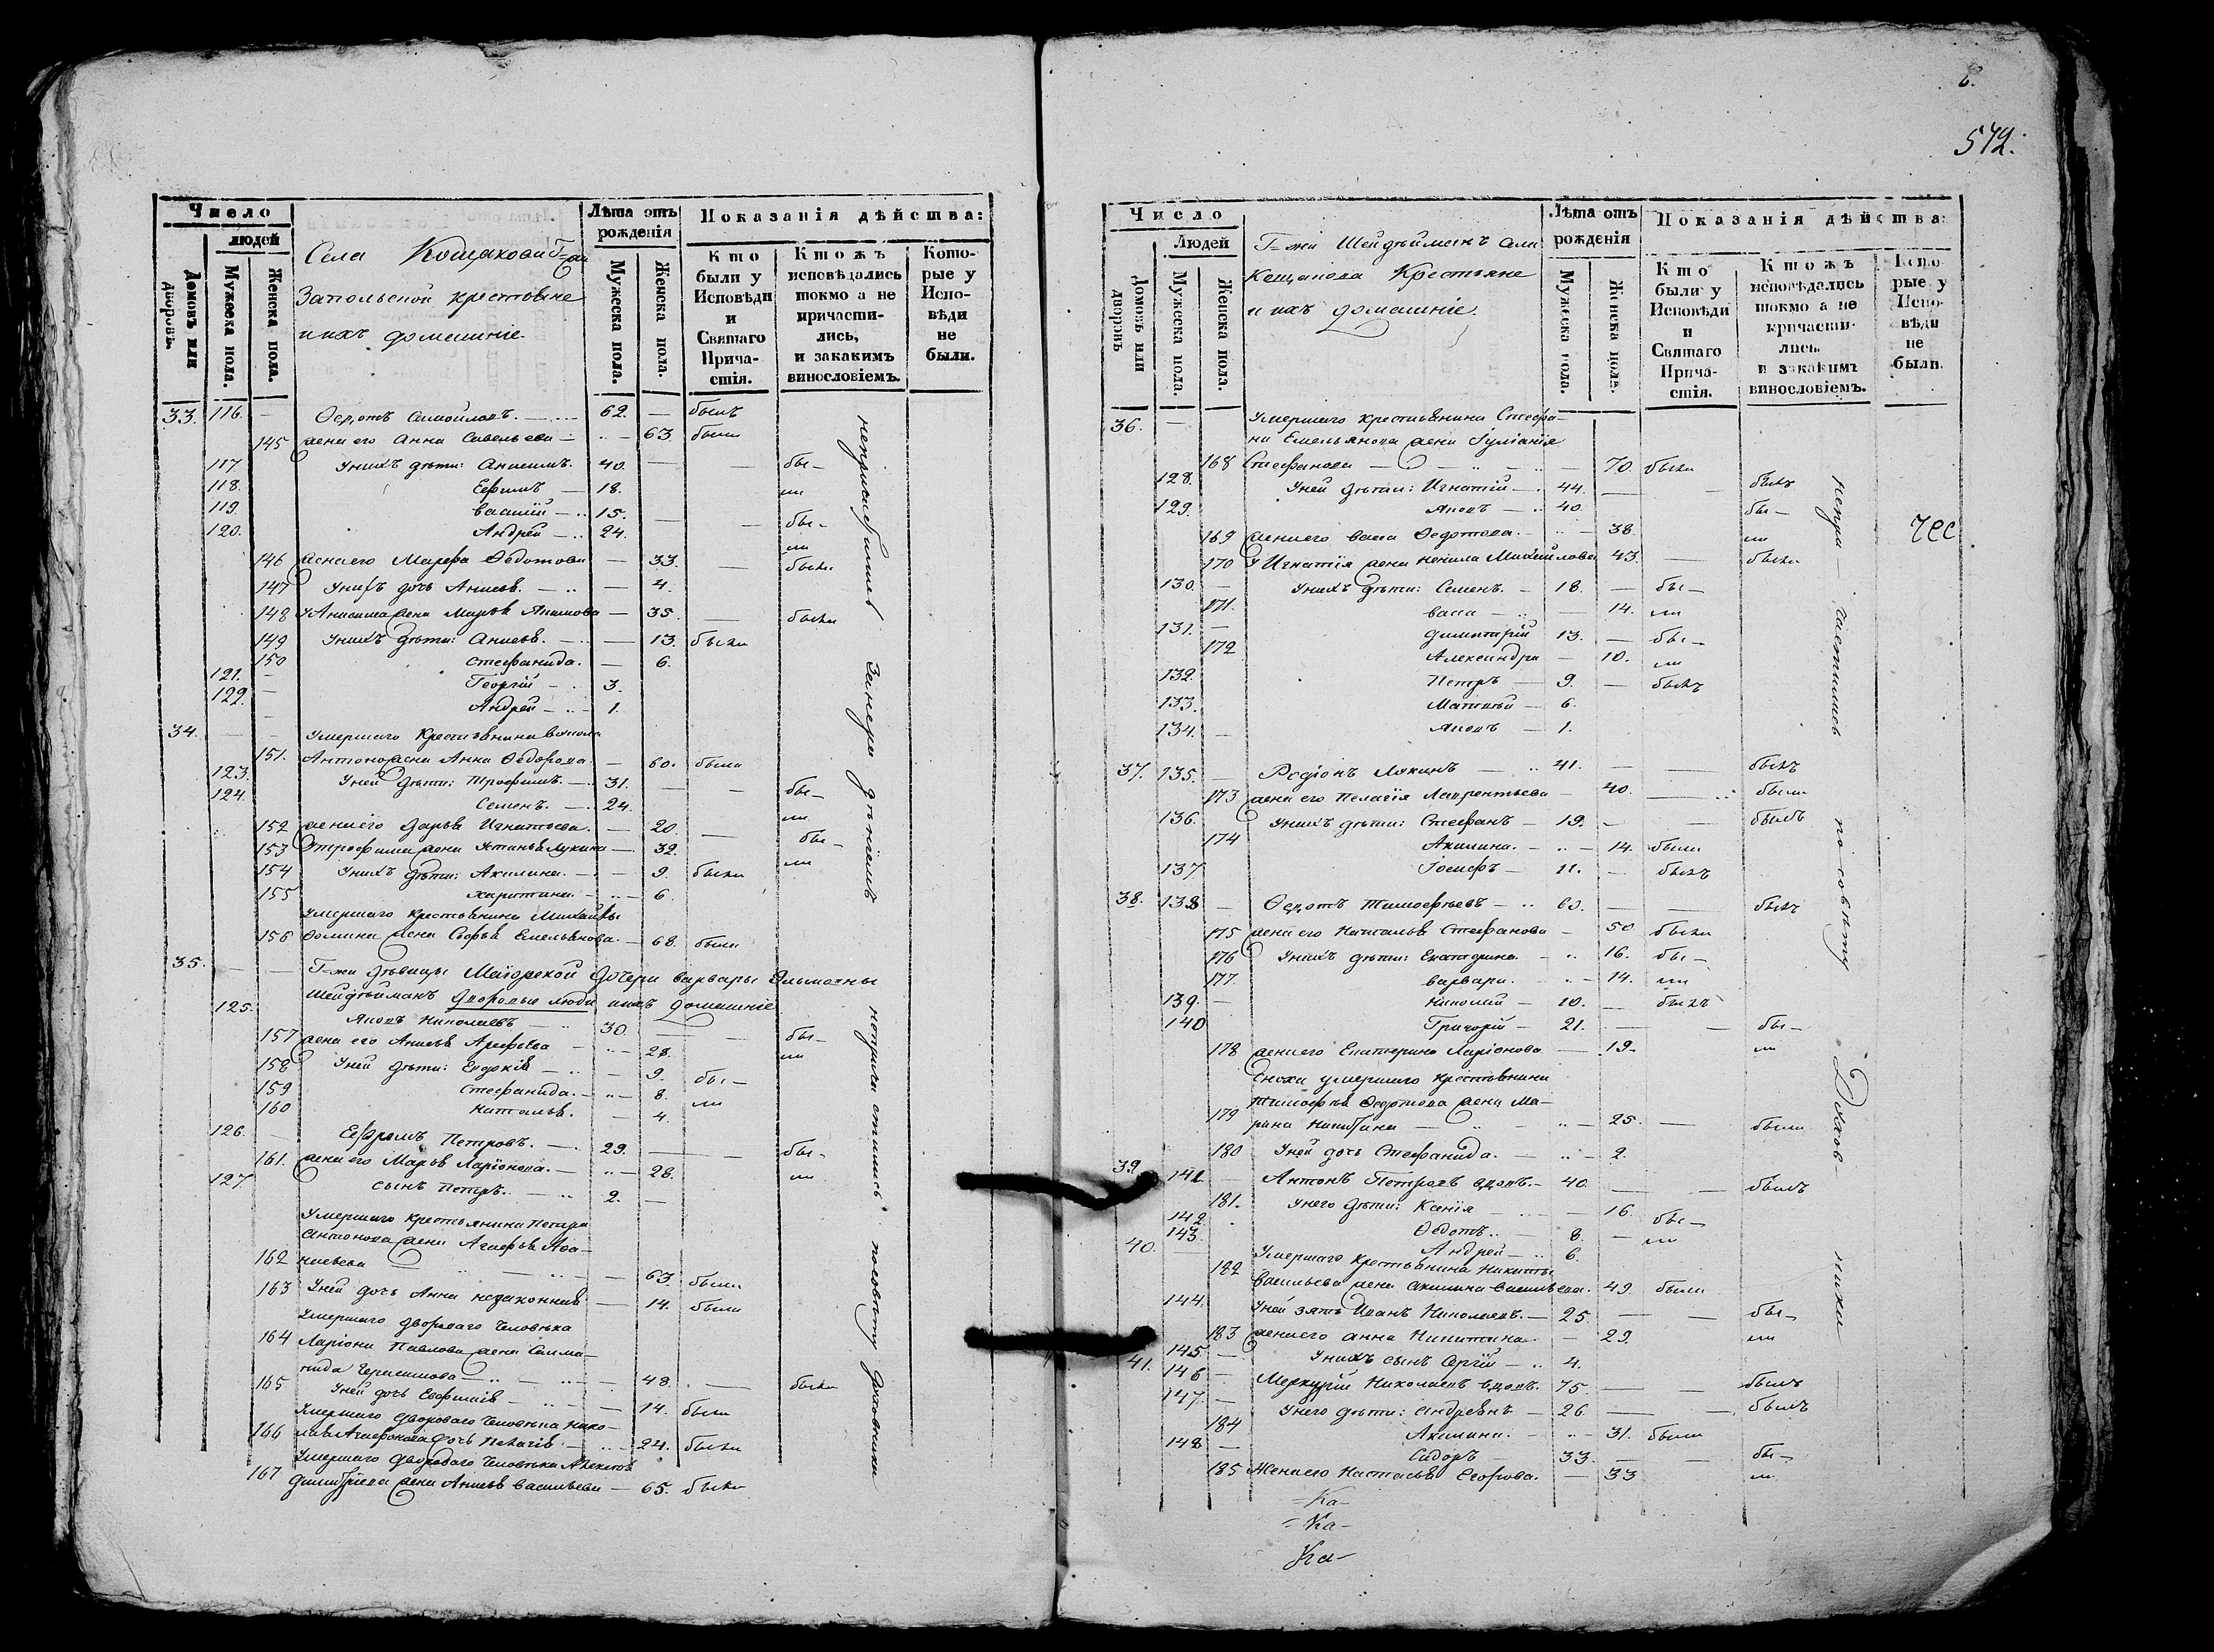 Число
людей
Домовъ или дворовъ.
Мужеска пола.
Женска пола.
Села Кощакова Г=жи
Запольской крестьяне
и ихъ домашніе.
Лѣта отъ рожденія
Мужеска пола.
Женска пола.
Показанія дѣйства:
Кто были у Исповѣди и Святаго Прича-стія.
Ктожъ исповѣдались токмо а не причасти-лись, и закакимъ винословіемъ.
Кото-рые у Испо-вѣди не были.
33. 116. — Ѳедотъ Самойловъ. — 62. — былъ
145 жена его Анна Савельева — 63. была
117. Унихъ дѣти: Анисимъ. 40. — — бы-
118. Ефимъ — 18. ли
119. Василій — 15. — — бы-
120. Андрей — 24. ли
146 жена его Марфа Ѳедотова — 33. — была
147 Унихъ дочь Анисья. — 4.
148 У Анисима жена Марья Акимова — 35. — была
149 Унихъ дѣти: Анисья. — 13. была
150 Стефанида. — 6.
121. — Георгій — 3.
122. — Андрей — 1.
34. — — Умершаго Крестьянина
151. Антонова жена Анна Ѳедорова. — 60. была
123. Уней дѣти: Трофимъ. — 31. — — бы-
124. Семенъ. — 24. ли
152 жена его Дарья Игнатьева. — 20. — бы-
153 У Трофима жена Устинья Лукина — 32. ли
154 Унихъ дѣти: Акилина. — 9. была
155 Харитина. — 6.
Умершаго крестьянина Михайлы
156 Ѳомина жена Софья Емельянова. — 68. была
35. — — Г=жи дѣвицы Маіорской дочери Варвары
Шейдѣйманъ дворовые люди и ихъ домашніе
125. Яковъ Николаевъ — 30. — — бы-
157 жена его Анисья Арефьева — 28. ли
158 Уней дѣти: Евдокія — 9. бы-
159 Стефанида. — 8. ли
160 Наталья. — 4.
126. — Ефремъ Петровъ. — 29. — — бы-
161. жена его Марья Ларіонова. — 28. ли
127. сынъ Петръ. — 2. —
Умершаго крестьянина Петра
Антонова жена Агафья Аѳа-
162 насьева — 63. была
163 Уней дочь Анна незаконная — 14. была
Умершаго двороваго человѣка
164 Ларіона Павлова жена Соло-
нида Герасимова — 48. — была
165 Уней дочь Евфимія — 14. была
Умершаго двороваго человѣка Нико-
166 лая Агафонова дочь Пелагія — 24. была
Умершаго двороваго человѣка Алексѣя
167 Димитріева жена Анисья Васильева — 65. была
непріобщились Занерадѣніемъ непричастились посовѣту духовника
6.
572.
Число
Людей
Домовъ или дворовъ
Мужеска пола.
Женска пола.
Г=жи Шейдѣйманъ села
Кощакова Крестьяне
и ихъ домашніе.
Лѣта отъ рожденія
Мужеска пола.
Женска пола.
Показанія дѣйства:
Кто были у Исповѣди и Святаго Прича-стія.
Ктожъ исповѣдались токмо а не причасти-лись. и закакимъ винословіемъ.
Кото-рые у Испо-вѣди не были.
36. — Умершаго крестьянина Стефа-
на Емельянова жена Іуліанія
168 Стефанова — 70. была
128. Уней дѣти: Игнатій — 44. — — былъ
129. Яковъ — 40. бы-
169 жена его Васа Ѳедотова. — 38. ли
170 У Игнатія жена Ненила Михайлова 43. — была
130. — Унихъ дѣти: Семенъ. — 18. — бы-
171. Васа — 14. ли
131. — Димитрій 13. — бы-
172 Александра — 10. ли
132. Петръ — 9. — былъ
133. Матвѣй — 6.
134. — Яковъ — 1.
37. 135. — Родіонъ Лукинъ — 41. — — былъ
173 жена его Пелагія Лаврентьева — 40. — была
136. Унихъ дѣти: Стефанъ — 19. — — былъ
174 Акилина. — 14. была
137 Іосифъ — 11. — былъ
38. 138 — Ѳедотъ Тимофѣевъ — 60. — — былъ
175 жена его Наталья Стефанова — 50 была
176 Унихъ дѣти: Екатерина. — 16. бы-
177. Варвара. — 14. ли
139. — Николай — 10. — былъ
140 Григорій — 21. — — бы-
178 жена его Екатерина Ларіонова — 19. ли
Сноха умершаго крестьянина
Тимофѣя Ѳедотова жена Ма-
179 рина Никитина — 25. — была
180 Уней дочь Стефанида. — 2.
39. 141 — Антонъ Петровъ вдовъ. — 40. — — былъ
181. Унего дѣти: Ксенія — 16. бы-
142. Ѳедотъ. — 8. — ли
143. Андрей — 6.
40. Умершаго крестьянина Никиты
182 Васильева жена Акилина Васильева. 49. была
144. Уней зять Иванъ Николаевъ. — 25. — — бы-
183 жена его Анна Никитина. — 29. ли
145. — Унихъ сынъ Сергій — 4.
41. 146 — Меркурій Николаевъ вдовъ. 75. — — былъ
147. — Унего дѣти: Андреянъ — 26. — — былъ
184 Акилина. — 31. была
148 — Сидоръ — 33. — — бы-
185 Жена его Настасья Егорова. — 33 ли
непри-частились по совѣту Духов-ника
=Ка-
=Ка-
Ка-